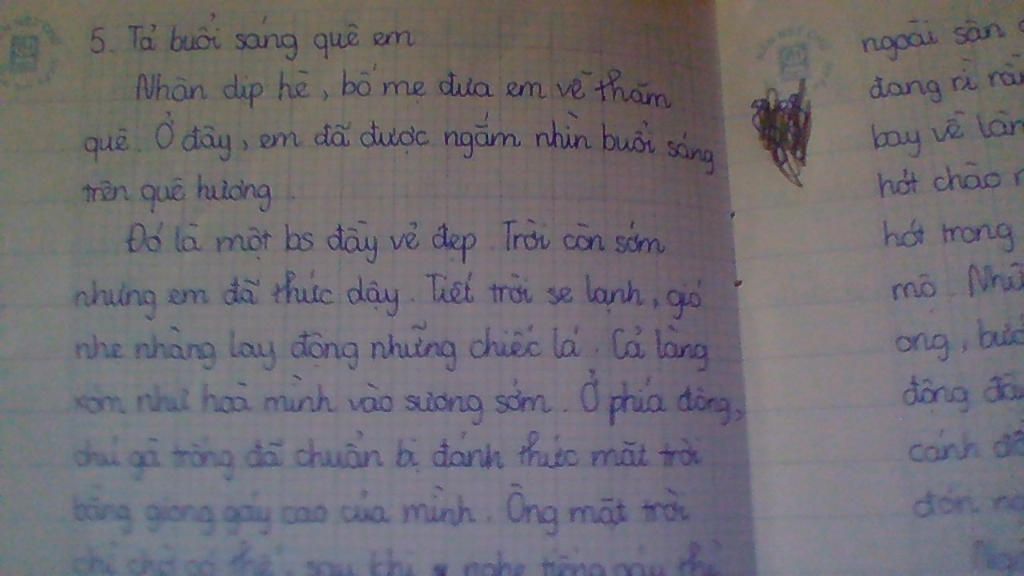 5. Tả buổi sáng quê em
Nhân dịp hè, bố mẹ đưa em về thăm
quê. Ở đây, em đã được ngắm nhìn buổi sáng
trên quê hương.
Đó là một bs đầy vẻ đẹp. Trời còn sớm
nhưng em đã thức dậy. Tiết trời se lạnh, gió
nhẹ nhàng lay động những chiếc lá. Cả làng
xóm như hoà mình vào sương sớm. Ở phía đông,
chú gà trống đã chuẩn bị đánh thức mặt trời
bằng giọng gáy cao của mình. Ông mặt trời
chỉ chờ có thế, sau khi nghe tiếng gáy thì
ngoài sân
đang rì
bay về
hót chào
hót trong
mồ. Những
ong,
động
cánh
đón